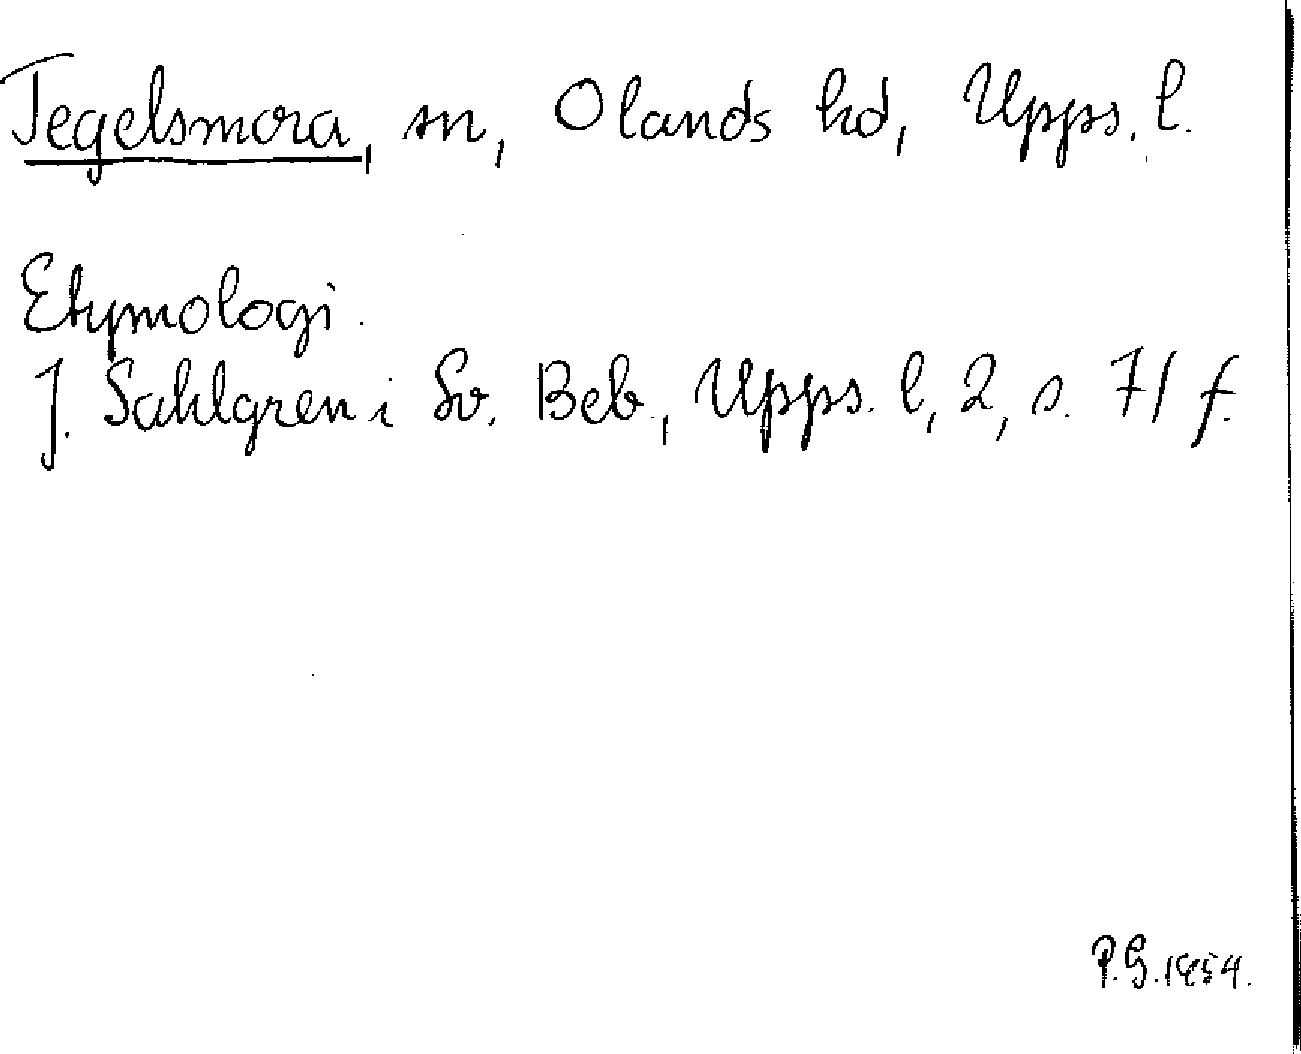 Tegelsmora, sn, Olands hd, Upps. l.
Etymologi.
J. Sahlgren i Sv. Beb., Upps. l, 2, s. 71 f.
P.G. 1954.